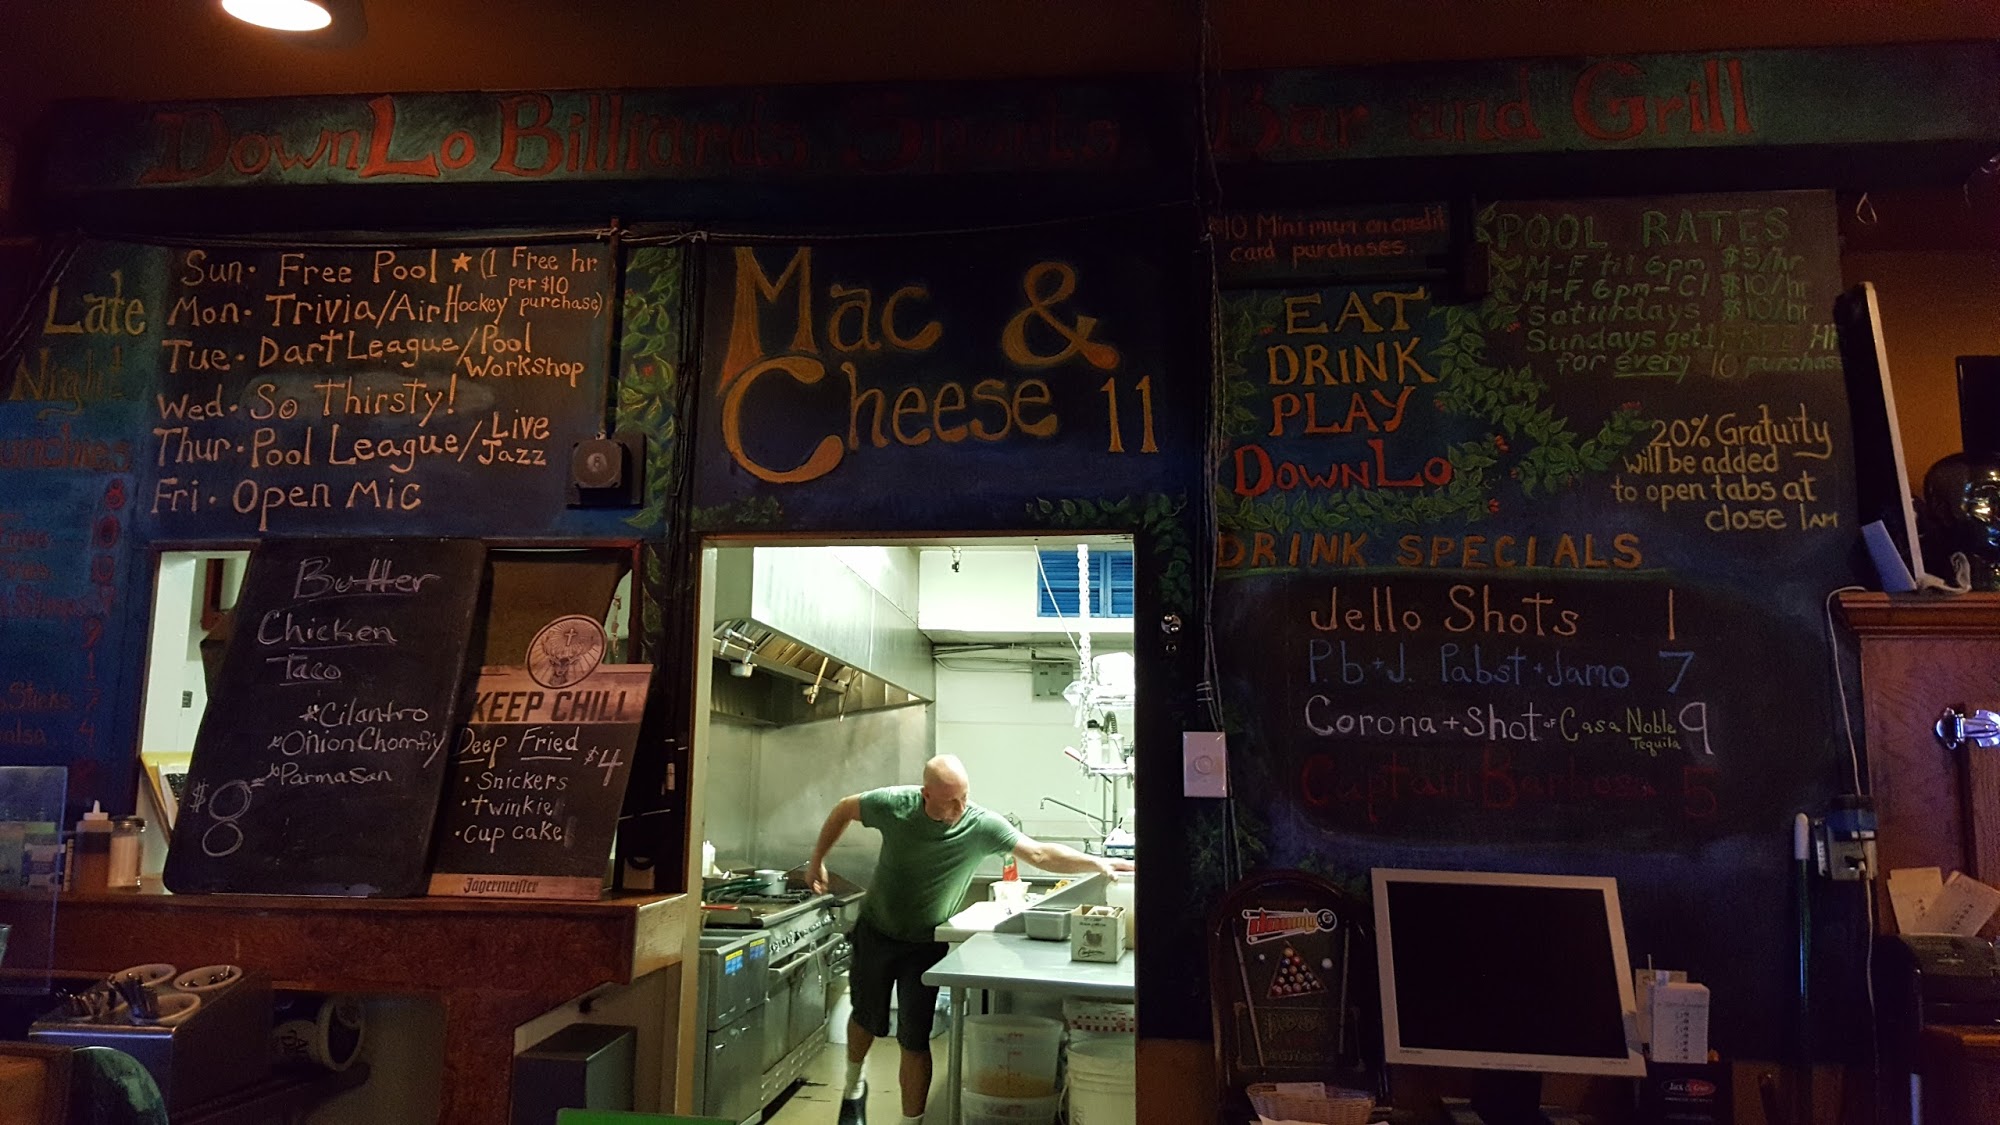 DownLo Billiards Sports Bar and Grill
Late
Night
Sun. Free Pool ★ (1 Free hr.
per $10
purchase)
Mon. Trivia/Air Hockey
Tue. Dart League/Pool
Workshop
Wed. So Thirsty!
Thur. Pool League/Live
Jazz
Fri. Open Mic
Mac &
Cheese 11
$10 Minimum on credit
card purchases.
EAT
DRINK
PLAY
DOWNLO
POOL RATES
M-F til 6pm $5/hr
M-F 6pm-Cl $10/hr
Saturdays $10/hr
Sundays get 1 FREE HR
for every 10 purchase
20% Gratuity
will be added
to open tabs at
close 1AM
DRINK SPECIALS
Jello Shots 1
P.b+J. Pabst+Jamo 7
Corona+Shot of Casa Noble
Tequila 9
Captain Barbosa 5
Butter
Chicken
Taco
*Cilantro
*Onion Chomfiy
*Parmasan
$8
KEEP CHILL
Deep Fried $4
• Snickers
• twinkie
• Cup cake
Jägermeister